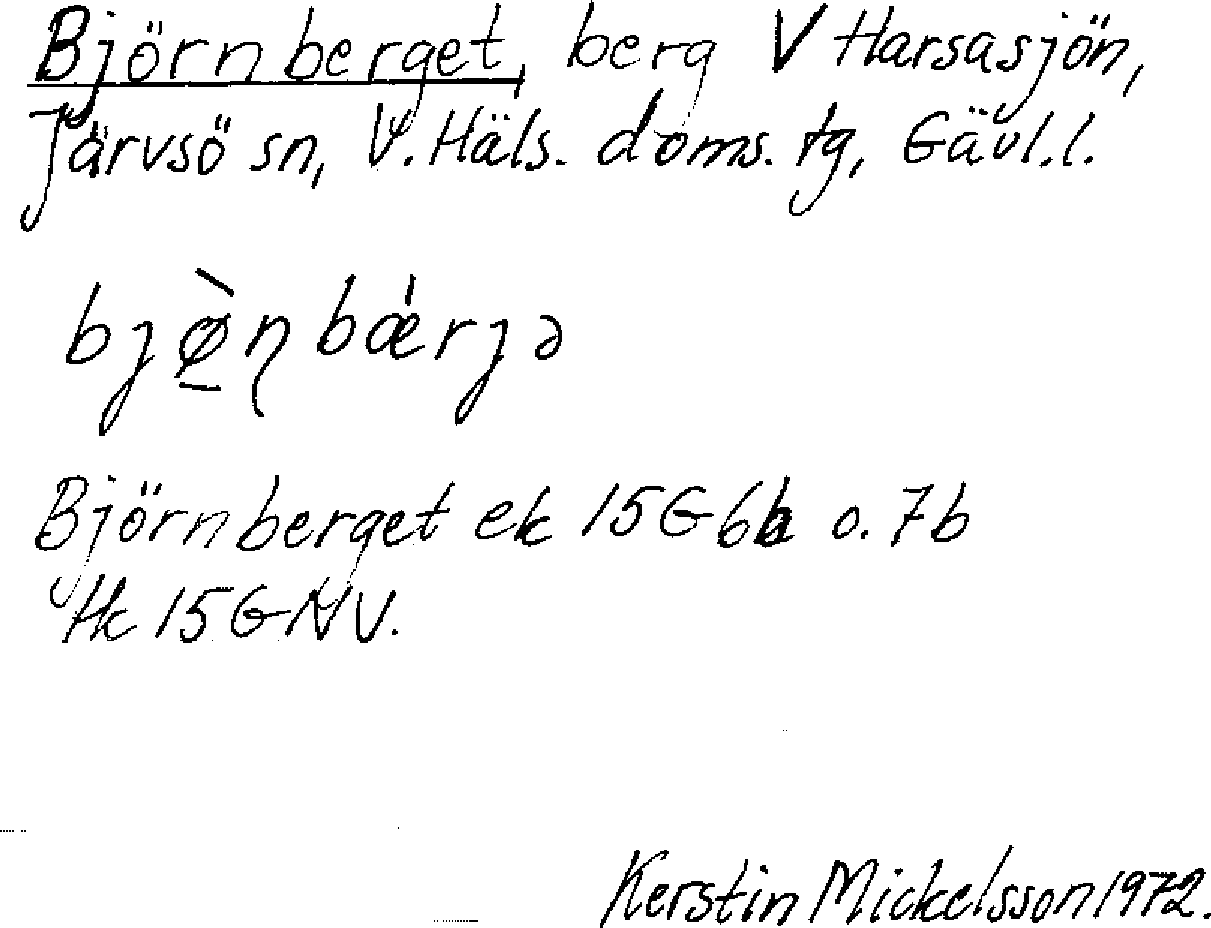 Björnberget, berg V Harsasjön,
Järvsö sn, V. Häls. doms. tg, Gävl.l.
bjø̠̀ɳbǽrjə
Björnberget ek 15G6b o. 7b
Hk 15GNV.
Kerstin Mickelsson 1972.